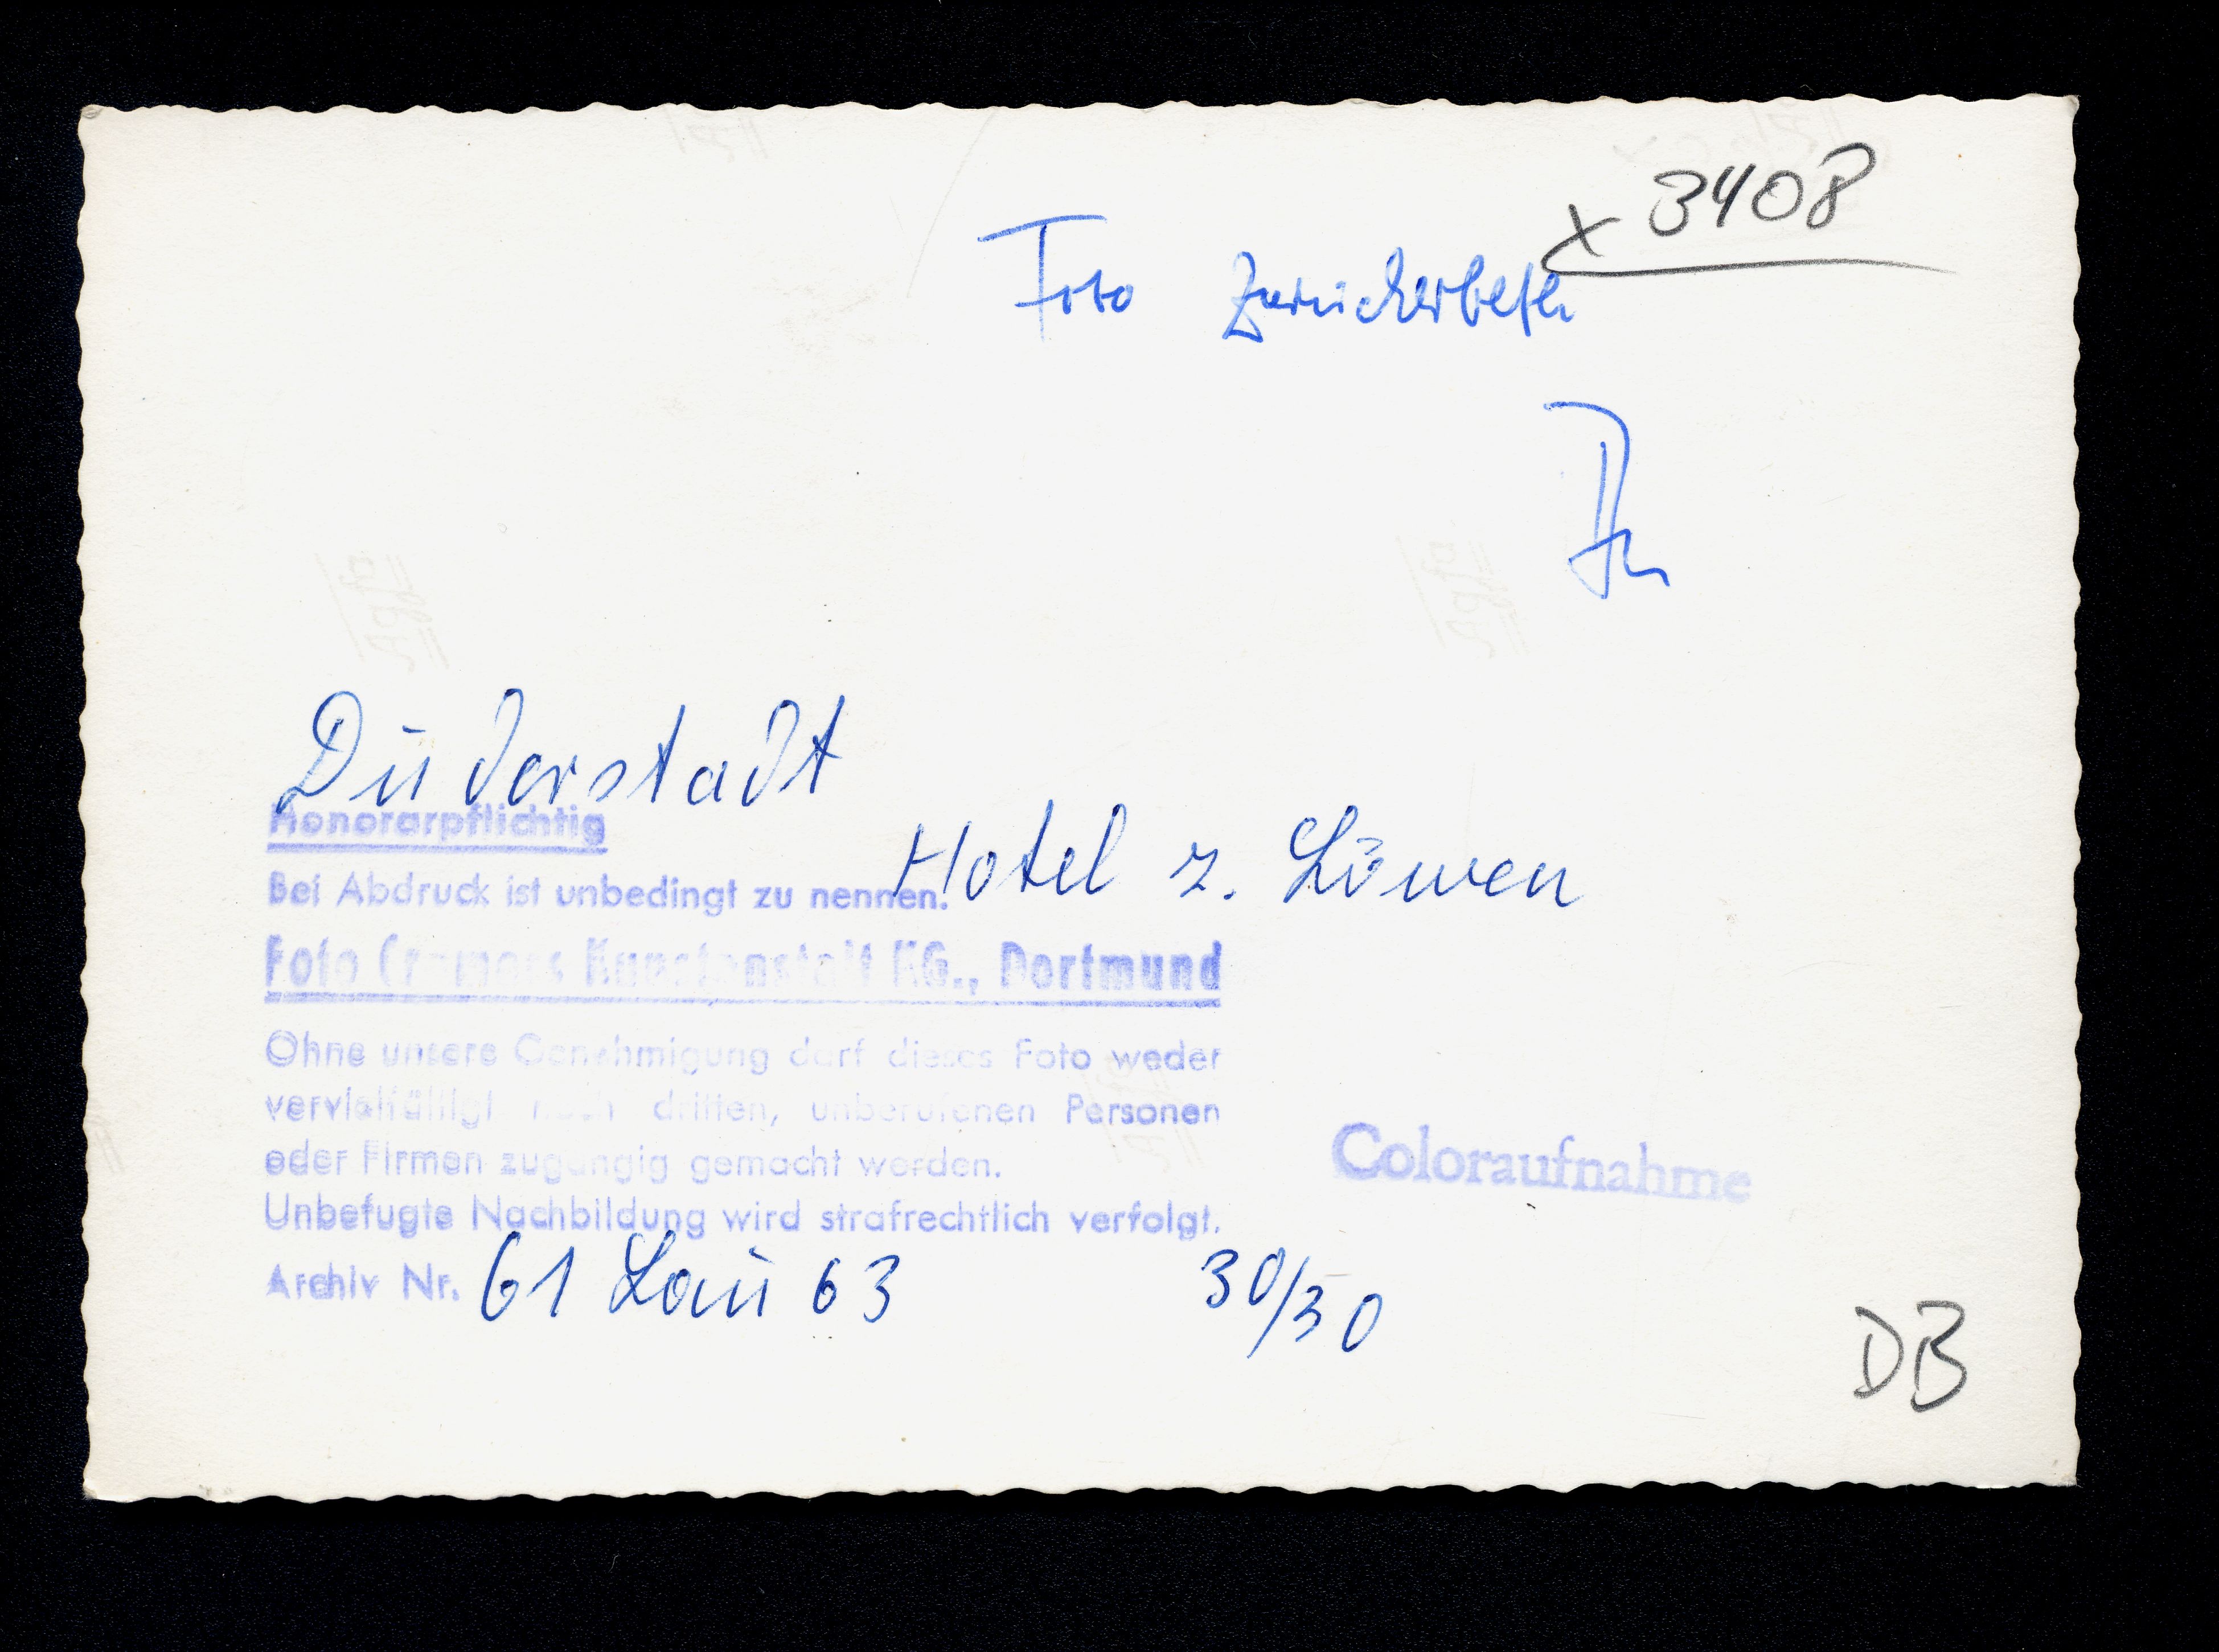 x 3408
Foto zurückerbeten
Duderstadt
Hotel z. Löwen
Honorarpflichtig
Bei Abdruck ist unbedingt zu nennen.
Foto Cramers Kunstanstalt KG., Dortmund
Ohne unsere Genehmigung darf dieses Foto weder
vervielfältigt noch dritten, unberufenen Personen
oder Firmen zugängig gemacht werden.
Unbefugte Nachbildung wird strafrechtlich verfolgt.
Archiv Nr. 61 Lau 63 30/30
Coloraufnahme
DB
Agfa
Agfa